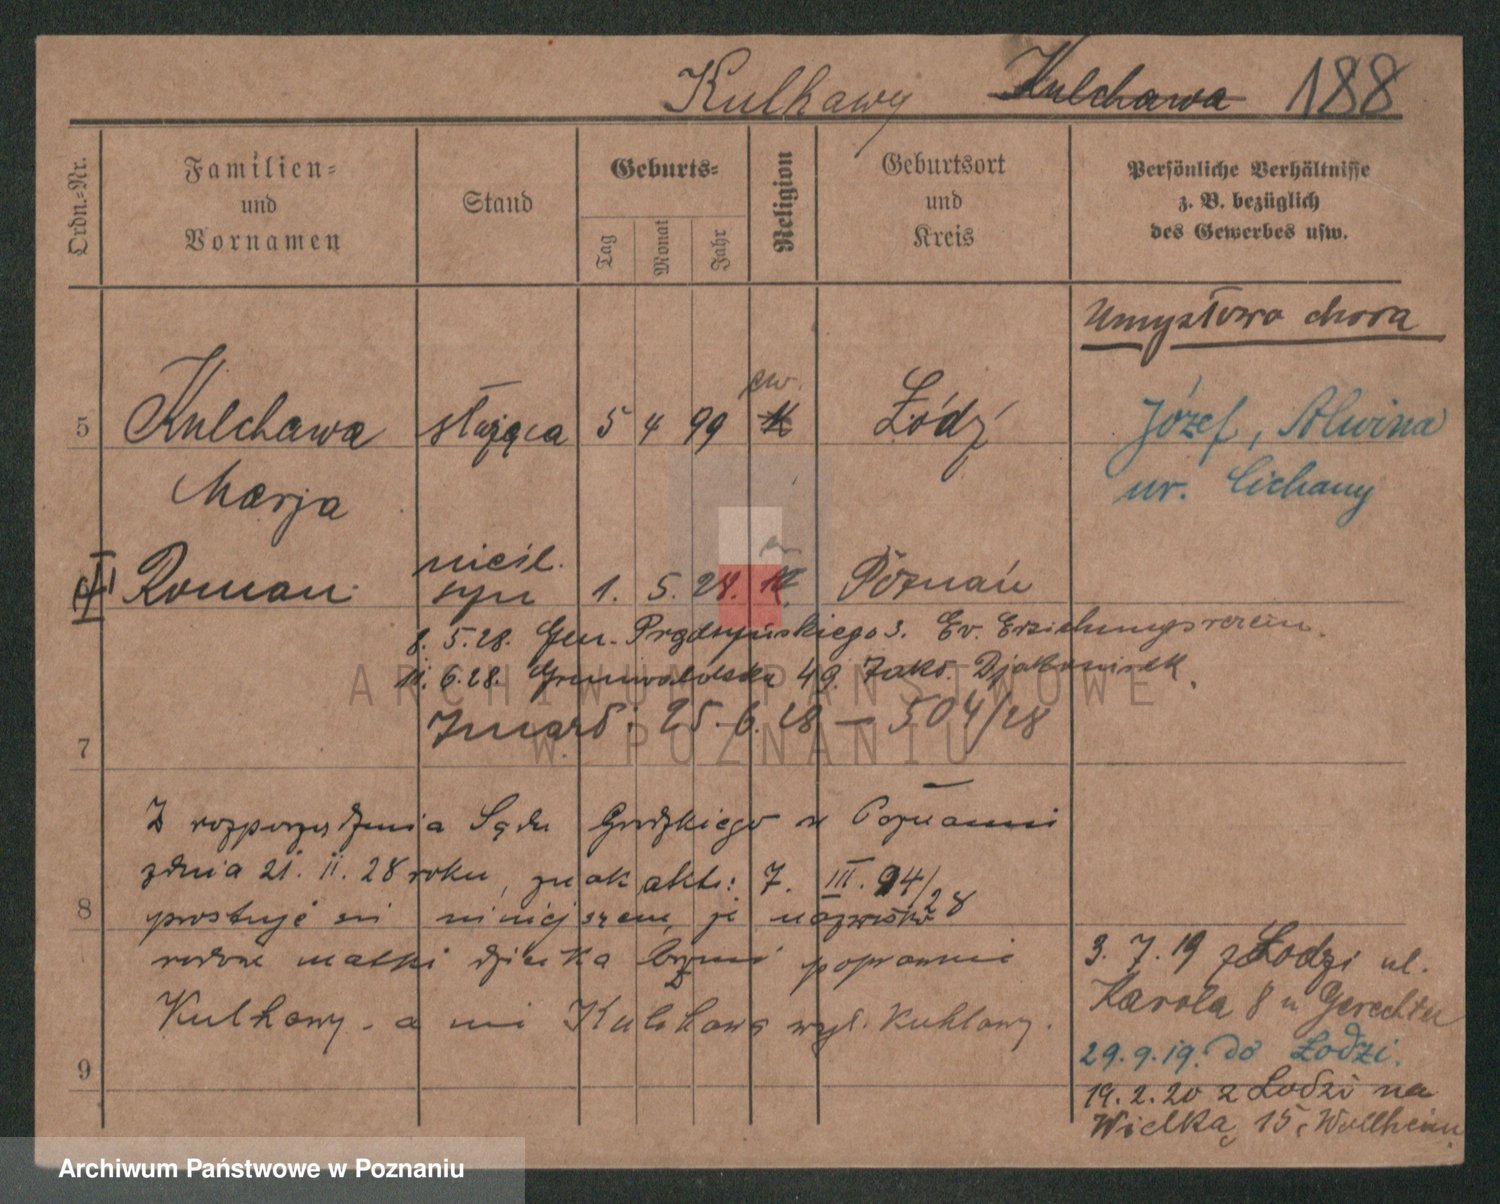 Kulhawy Kulchawa 188
Ordn.-Nr.
Familien-
und
Vornamen
Stand
Geburts-
Tag Monat Jahr
Religion
Geburtsort
und
Kreis
Persönliche Verhältnisse
z. B. bezüglich
des Gewerbes usw.
Umysłowo chora
5 Kulchawa służąca 5 4 99 ew. K Łódź Józef, Alwina
Marja ur. Cichany
Roman nieśl. syn 1. 5. 28. K Poznań
8. 5. 28. Gen. Prądzyńskiego 3. Ev. Erziehungsverein.
11. 6. 28. Grunwaldzka 49.
Zmarł: 25. 6. 28 — 504/28
7
Z rozporządzenia Sądu Grodzkiego w Poznaniu
z dnia 21. II. 28 roku, znak akt: 7. III. 94/28
8 prostuje się niniejszem, że nazwisko
rodowe matki dziecka brzmi poprawnie
Kulhawy - a nie Kulchawa wzgl. Kuhlawy.
3. 7. 19 z Łodzi ul.
Karola 8 u Gerechter
29. 9. 19. do Łodzi.
9
19. 2. 20 z Łodzi na
Wielka 15, Wollheim.
ARCHIWUM PAŃSTWOWE
W POZNANIU
Archiwum Państwowe w Poznaniu